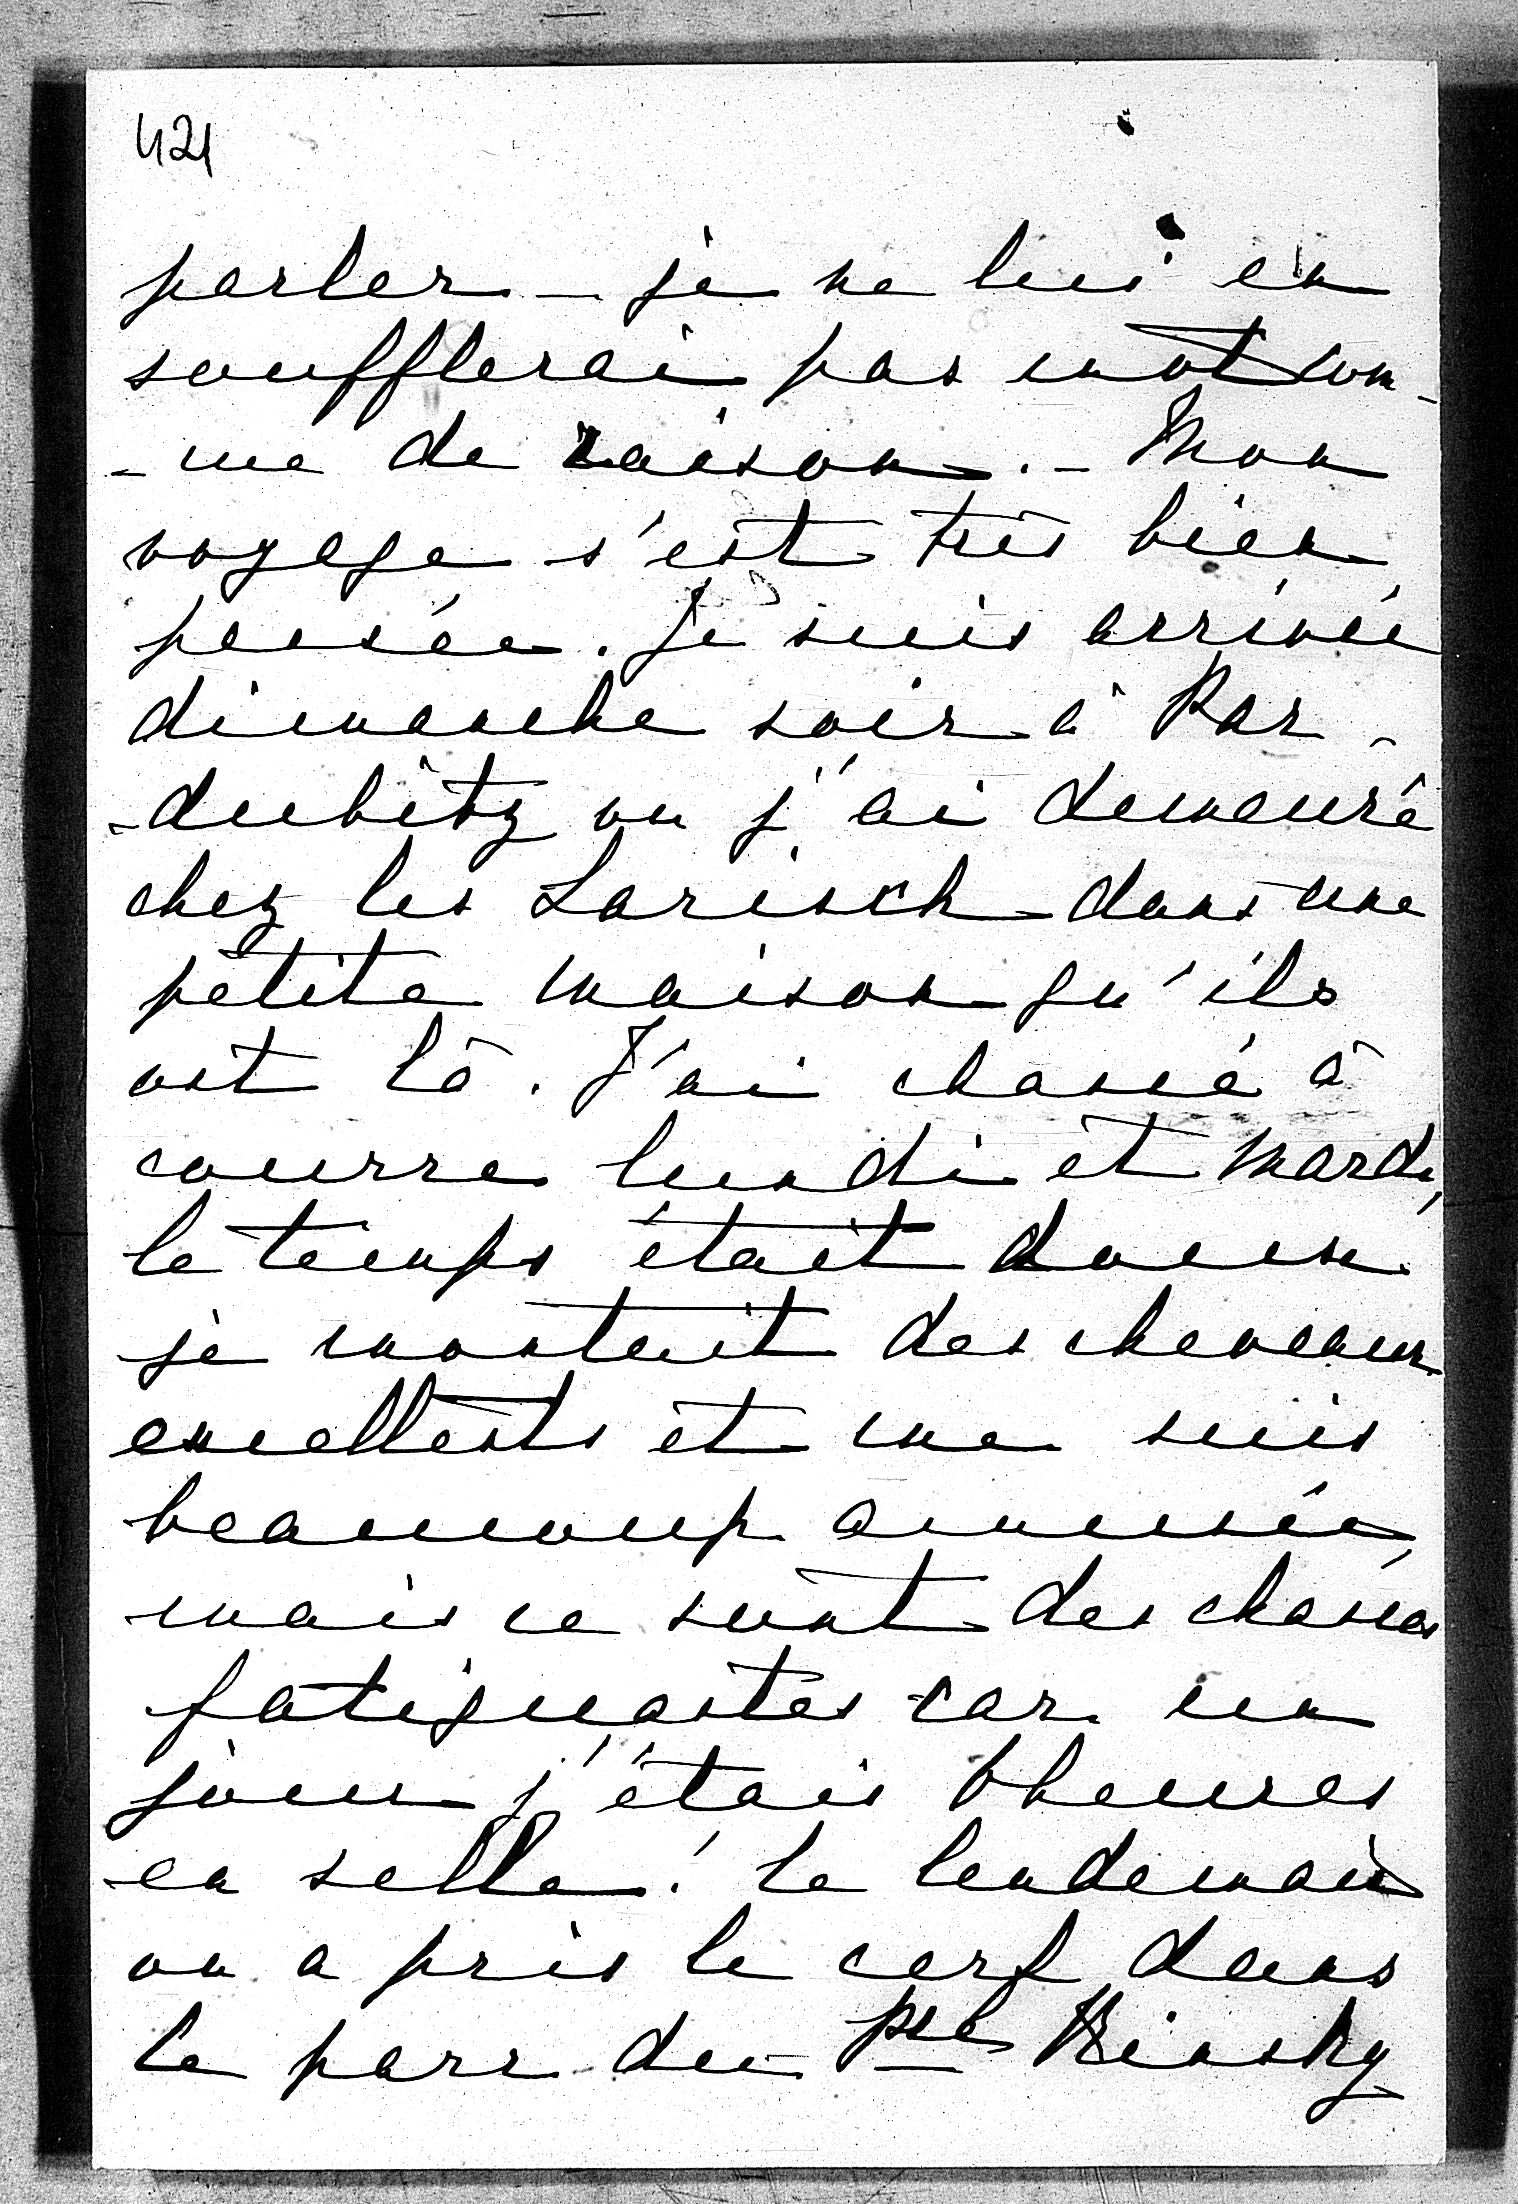 421
parler – je ne lui en
soufflerai pas mot com-
-me de raison. – Mon
voyage s'est très bien
passée. Je suis arrivée
dimanche soir à Par-
-dubitz ou j'ai demeuré
chez les Larisch dans une
petite maison qu'ils
ont là. J'ai chassé à
courre lundi et mardi,
le temps était doux
je montait des chevaux
excellents et me suis
beaucoup amusée,
mais ce sont des chasses
fatiguantes car un
jour j'étais 6 heures
en selle! Le lendemain
on a pris le cerf dans
le parc du Pce Kinsky